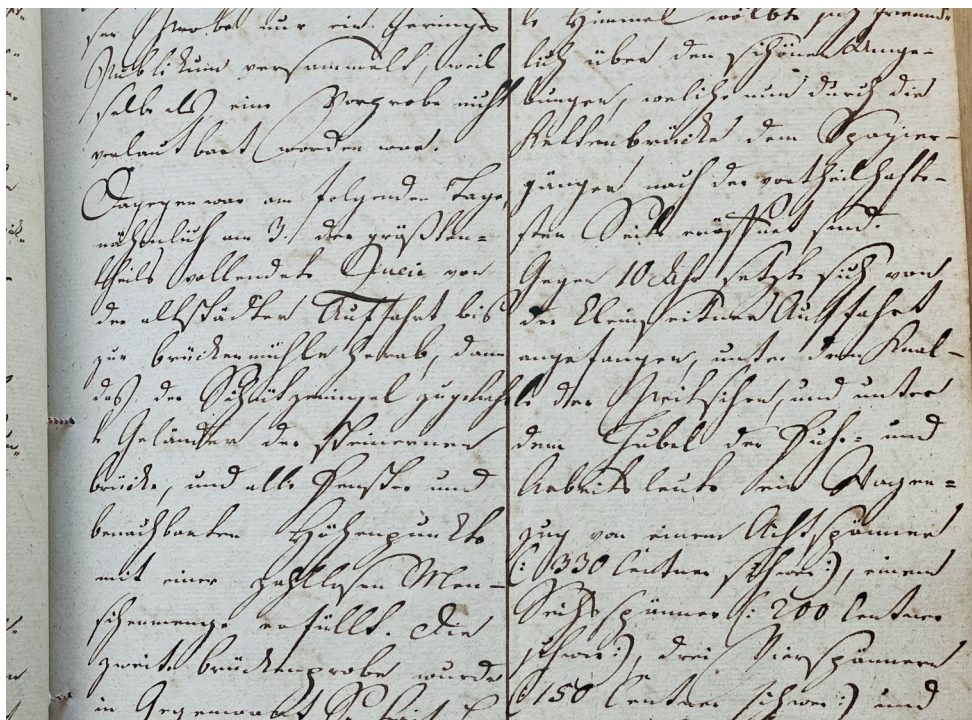 ser Probe nur ein geringes
Publikum versammelt, weil
selbe als eine Vorprobe nicht
verlautbart worden war.
Dagegen war am folgenden Tage,
nähmlich am 3. der größten-
theils vollendete Quai von
der altstädter Auffahrt bis
zur brückenmühle herab, dann
das der Schützeninsel zugekehr-
te Geländer der steinernen
brücke, und alle Fenster und
benachbarten Höhenpunkte
mit einer zahllosen Men-
schenmenge erfüllt. Die
zweite brückenprobe wurde
in Gegenwart
le Himmel wölbte sich freund-
lich über den schönen Umge-
bungen, welche nun durch die
Kettenbrücke dem Spazier-
gänger nach der vortheilhafte-
sten Seite eröffnet sind.
Gegen 10 Uhr setzte sich von
der Kleinseitner Auffahrt
angefangen, unter dem Knal-
le der Peitschen, und unter
dem Jubel der Fuhr- und
Arbeitsleute ein Wagen-
zug von einem Achtspänner
(: 330 Centner schwer :), einem
Sechsspänner (: 200 Centner
schwer :), drei Vierspännern
(: 150 Centner schwer :) und